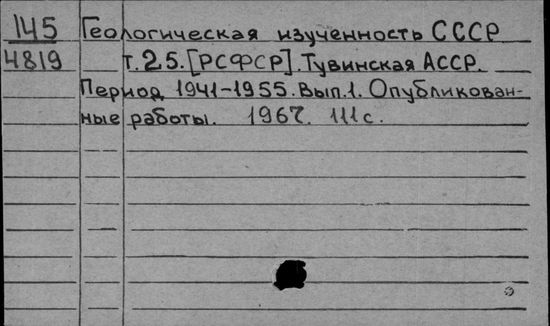 145 Геологическая изученность СССР
4819 т.25. [РСФСР]. Тувинская АССР.
Период 1941-1955. Вып.1. Опубликован-
ные работы. 1967. 111 с.